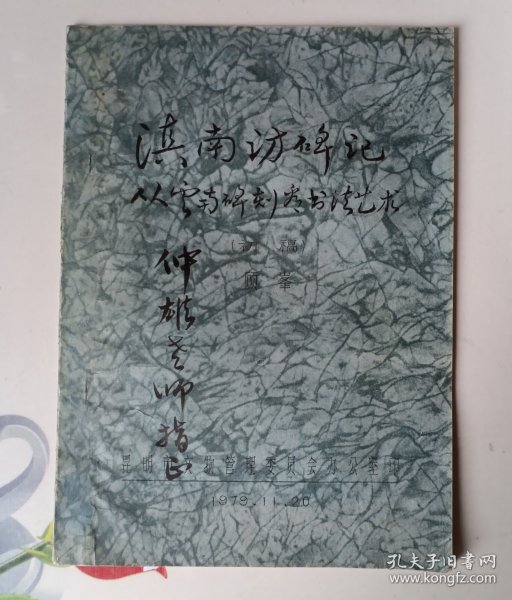 滇南访碑记
从云南碑刻看书法艺术
(初稿)
仲雄老师指正
昆明市文物管理委员会办公室印
1979.11.20
孔夫子旧书网
www.kongfz.com